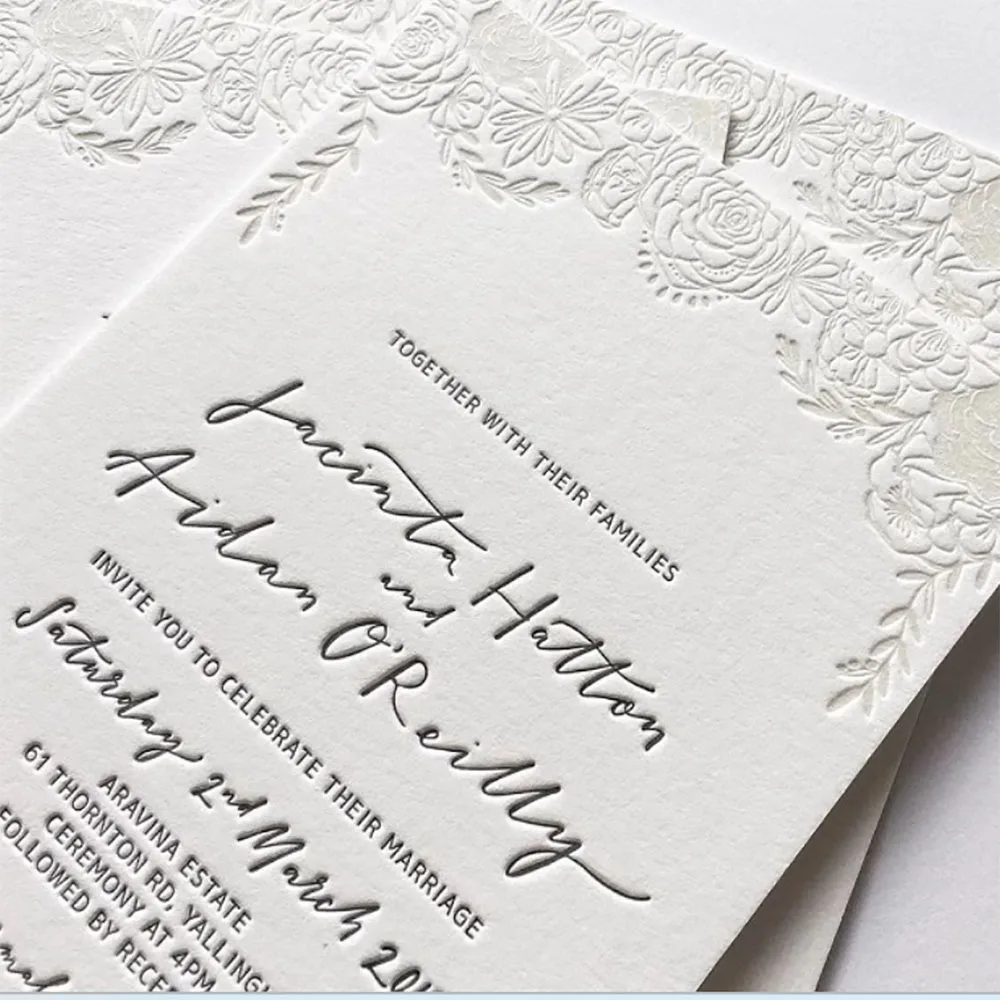 TOGETHER WITH THEIR FAMILIES
Jacinta Hatton
and
Aidan O'Reilly
INVITE YOU TO CELEBRATE THEIR MARRIAGE
Saturday 2nd March
ARAVINA ESTATE
61 THORNTON RD,
CEREMONY AT 4PM
FOLLOWED BY